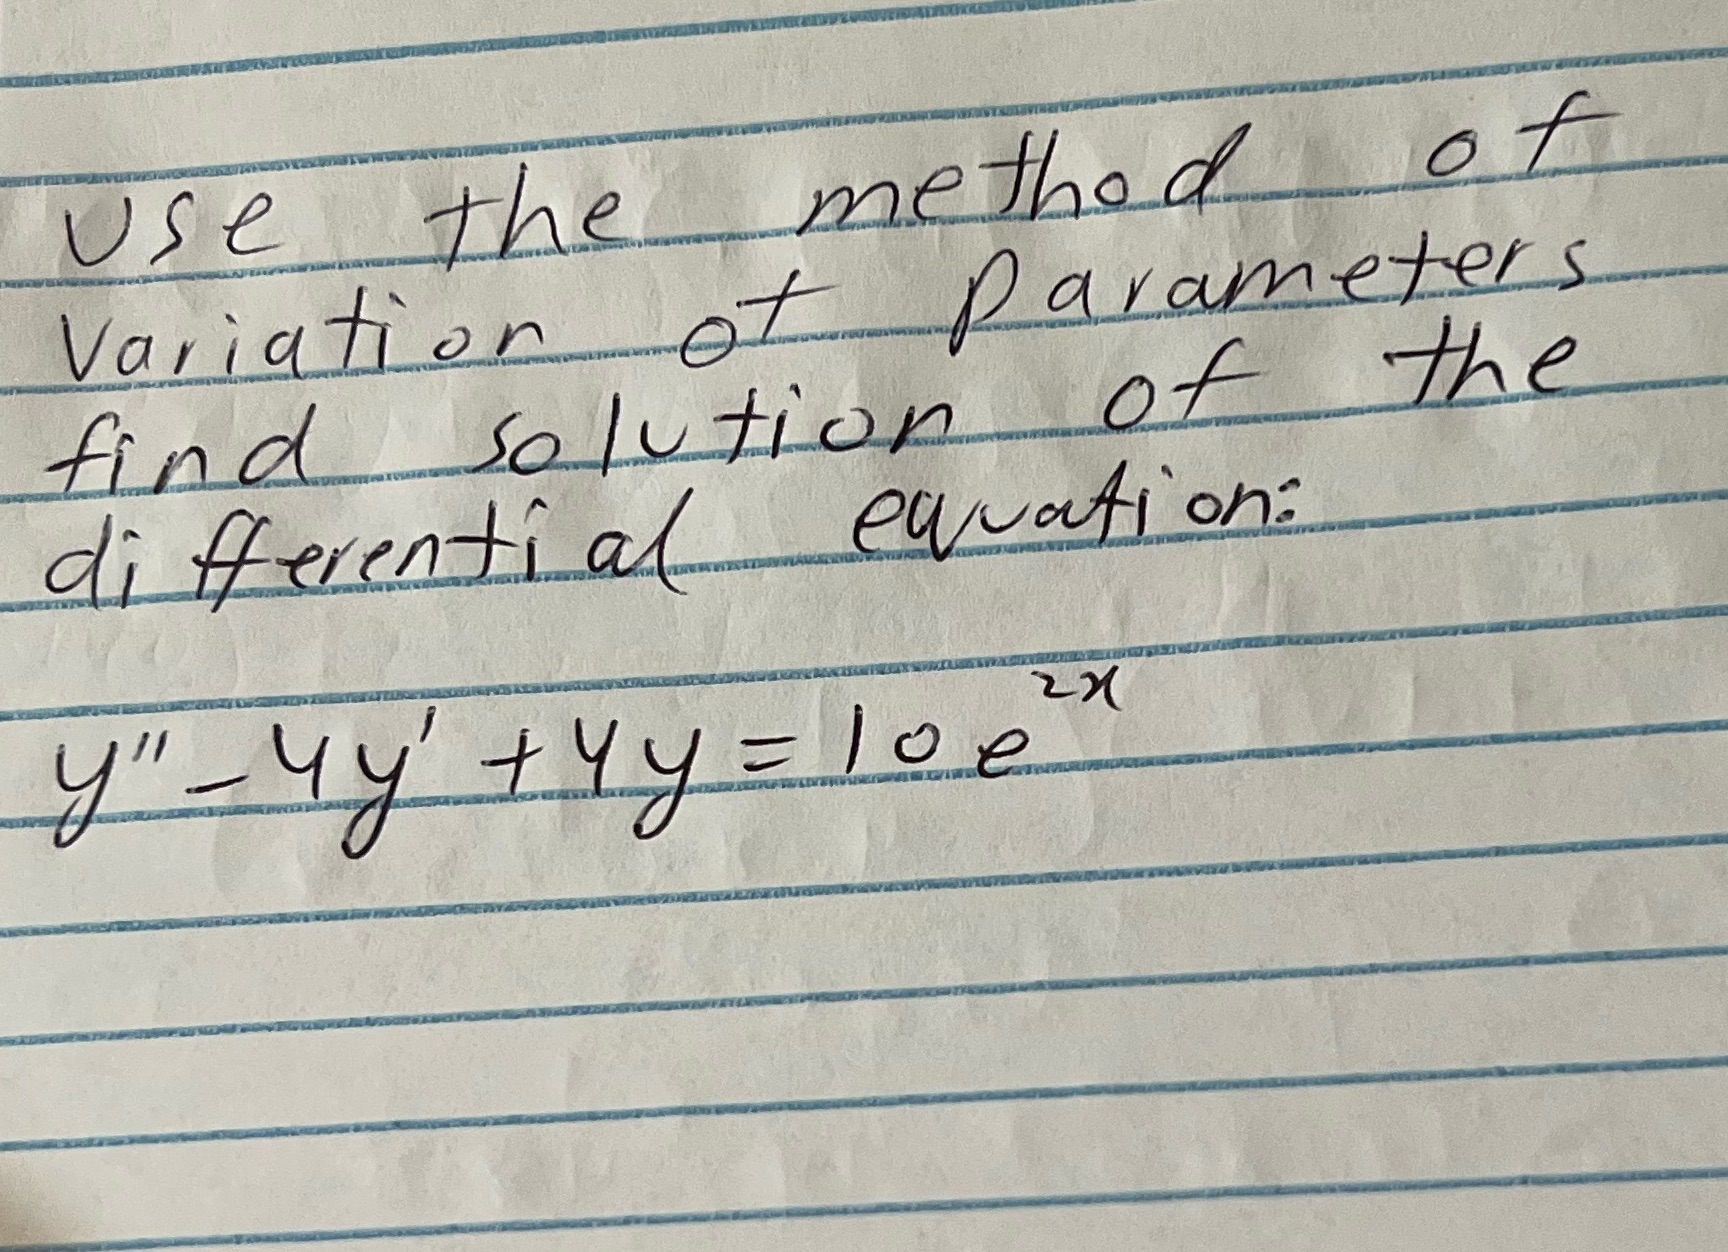 Use the method of
Variation of parameters
find solution of the
differential equation:
y'' - 4y' + 4y = 10e^{2x}